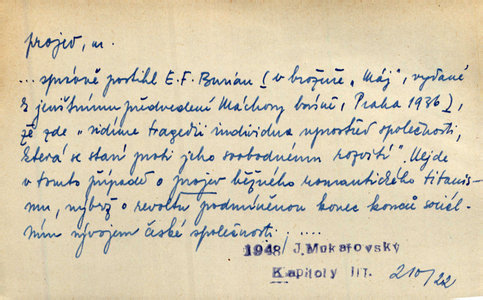 projev, m.
...správně postihl E. F. Burian (v brožuře „Máj“, vydané
k jevištnímu předvedení Máchovy básně, Praha 1936),
že zde „vidíme tragedii individua uprostřed společnosti,
která se staví proti jeho svobodnému rozvití“. Nejde
v tomto případě o projev běžného romantického titanis-
mu, nýbrž o revoltu podmíněnou konec konců sociál-
ním vývojem české společnosti ......
1948/ J.Mukařovský
Kapitoly III.
210/22